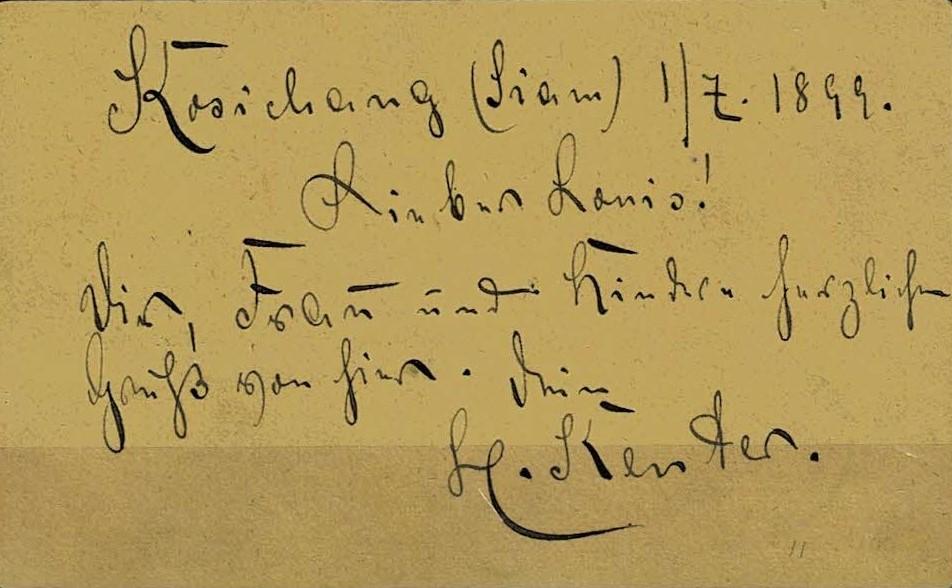 Kosichang (Siam) 1/7. 1899.
Lieber Louis!
Dir, Frau und Kindern herzlichen
Gruß von hier. Dein
H. Kenter.